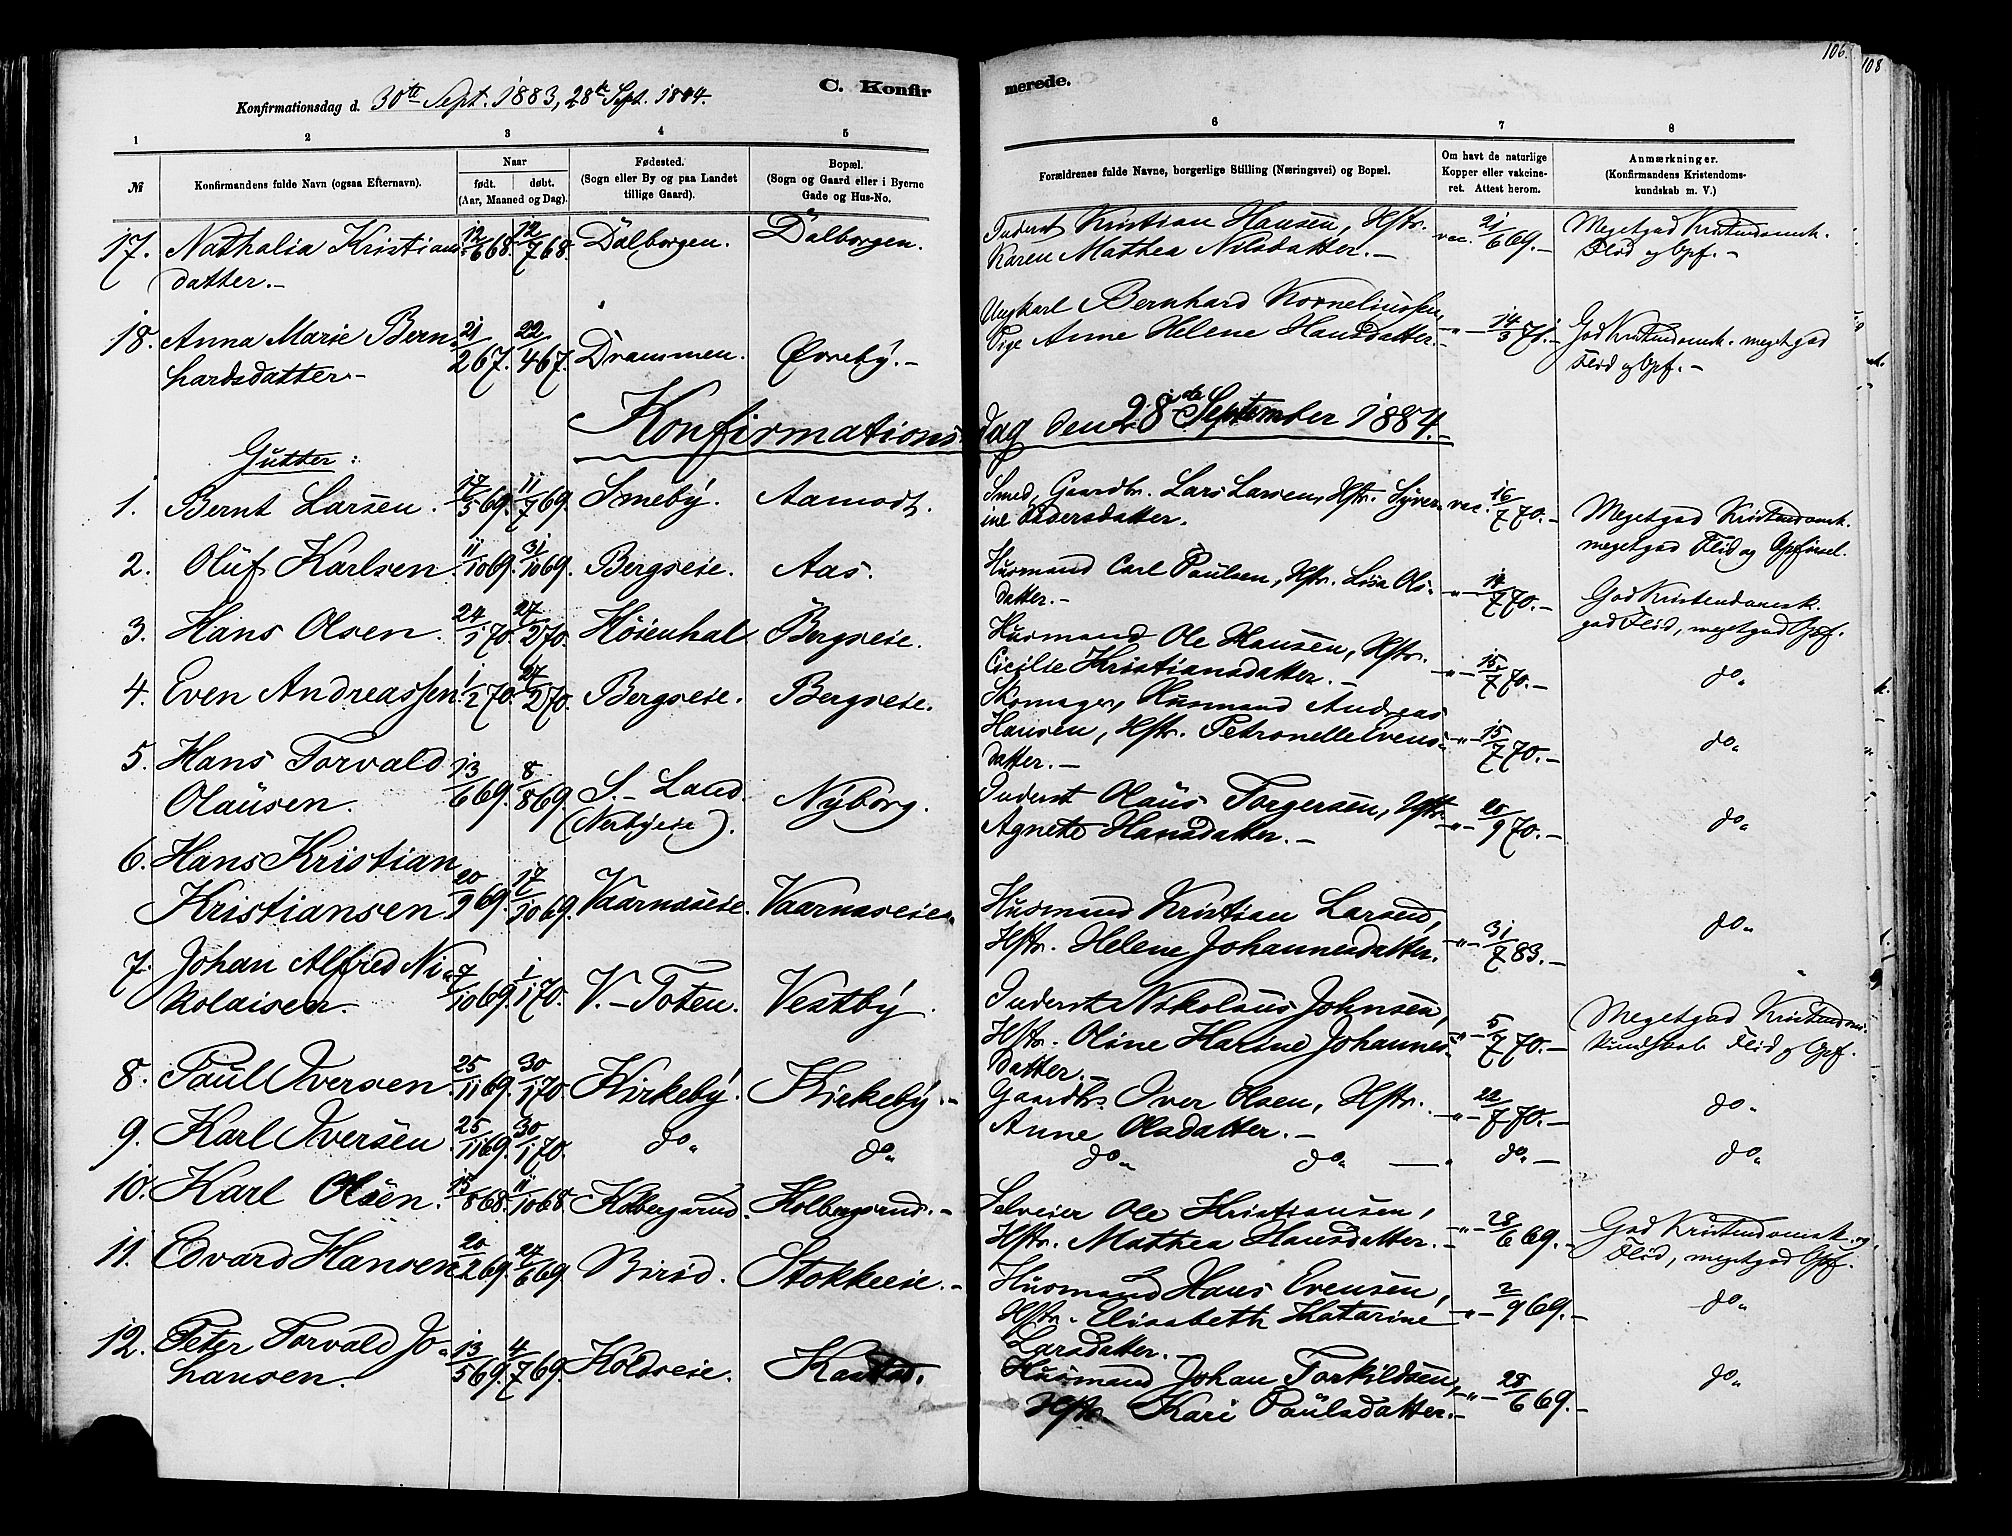 106.
108
Konfirmationsdag d. 30te Sept. 1883, 28de Sept. 1884.
C. Konfirmerede.
1 2 3 4 5 6 7 8
№
Konfirmandens fulde Navn (ogsaa Efternavn).
Naar
født. døbt.
(Aar, Maaned og Dag).
Fødested.
(Sogn eller By og paa Landet
tillige Gaard).
Bopæl.
(Sogn og Gaard eller i Byerne
Gade og Hus-No.
Forældrenes fulde Navne, borgerlige Stilling (Næringsvei) og Bopæl.
Om havt de naturlige
Kopper eller vakcine-
ret. Attest herom.
Anmærkninger.
(Konfirmandens Kristendoms-
kundskab m. V.)
17. Nathalia Kristians- 12/6 68. 12/7 68. Dalborgen. Dalborgen. Inderst Kristian Hansen, Hstr. vac. 21/6 69.- Megetgod Kristendomsk.
datter.- Karen Mathea Nilsdatter.- Flid og Opf.-
18. Anna Marie Bern- 21/2 67. 22/4 67. Drammen. Øvreby.- Ungkarl Bernhard Korneliussen, -"- 14/3 71.- God Kristendomsk. megetgod
hardsdatter- Pige Anne Helene Hansdatter.- Flid og Opf.-
Konfirmationsdag den 28de September 1884.-
Gutter:
1. Bernt Larsen. 17/5 69. 11/7 69. Smeby. Aamodt. Smed, Gaardbr. Lars Larsen, Hstr. Syver- vac. 16/7 70.- Megetgod Kristendomsk.
ine Andersdatter. megetgod Flid og Opførsel.
2. Oluf Karlsen. 11/10 69. 31/10 69. Bergseie. Aas. Husmand Carl Paulsen, Hstr. Lisa Ols- -"- 14/7 70.- God Kristendomsk.
datter.- god Flid, megetgod Opf.
3. Hans Olsen. 24/1 70. 27/2 70. Høienhal Bergseie. Husmand Ole Hansen, Hstr. -"- 15/7 70.- do"
Cicilie Kristiansdatter.-
4. Even Andreassen. 1/2 70. 27/2 70. Bergseie. Bergseie. Skomager, Husmand Andreas
Hansen, Hstr. Petronelle Evens- -"- 15/7 70.- do"
datter.-
5. Hans Torvald 13/6 69. 8/8 69. S- Land. Nyborg. Inderst Olaus Torgersen, Hstr. -"- 20/9 70.- do"
Olausen. (Nerbyeie). Agnete Hansdatter.-
6. Hans Kristian
Kristiansen. 20/9 69. 17/10 69. Vaarnæseie. Vaarnæseie. Husmand Kristian Larsen, -"- 31/7 83.- do"
Hstr. Helene Johannesdatter.
7. Johan Alfred Ni- 7/10 69. 1/1 70. V.-Toten. Vestby. Inderst Nikolaus Johnsen, -"- 5/7 70.- Megetgod Kristendoms-
kolaisen. Hstr. Oline Karine Johannes- kundskab Flid og Opf.
datter.-
8. Paul Iversen. 25/11 69. 30/1 70. Kirkeby. Kirkeby.- Gaardbr. Iver Olsen, Hstr. -"- 22/7 70.- do"
Anne Olsdatter.-
9. Karl Iversen 25/11 69. 30/1 70. do" do" do" do" — do"- do"
10. Karl Olsen. 15/8 68. 11/10 68. Kolbergsrud. Kolbergsrud.- Selveier Ole Kristiansen, -"- 28/6 69.- God Kristendomsk. og
Hstr. Mathea Hansdatter.- Flid, megetgod Opf.
11. Edvard Hansen 20/2 69. 27/6 69. Birid. Stokkeeie.- Husmand Hans Evensen, -"- 2/9 69.- do"
Hstr. Elisabeth Katarine
Larsdatter.-
12. Peter Torvald Jo- 13/5 69. 4/7 69. Koldseie. Husmand Johan Torkildsen, -"- 28/6 69.- do"
hansen. Hstr. Kari Paulsdatter.-